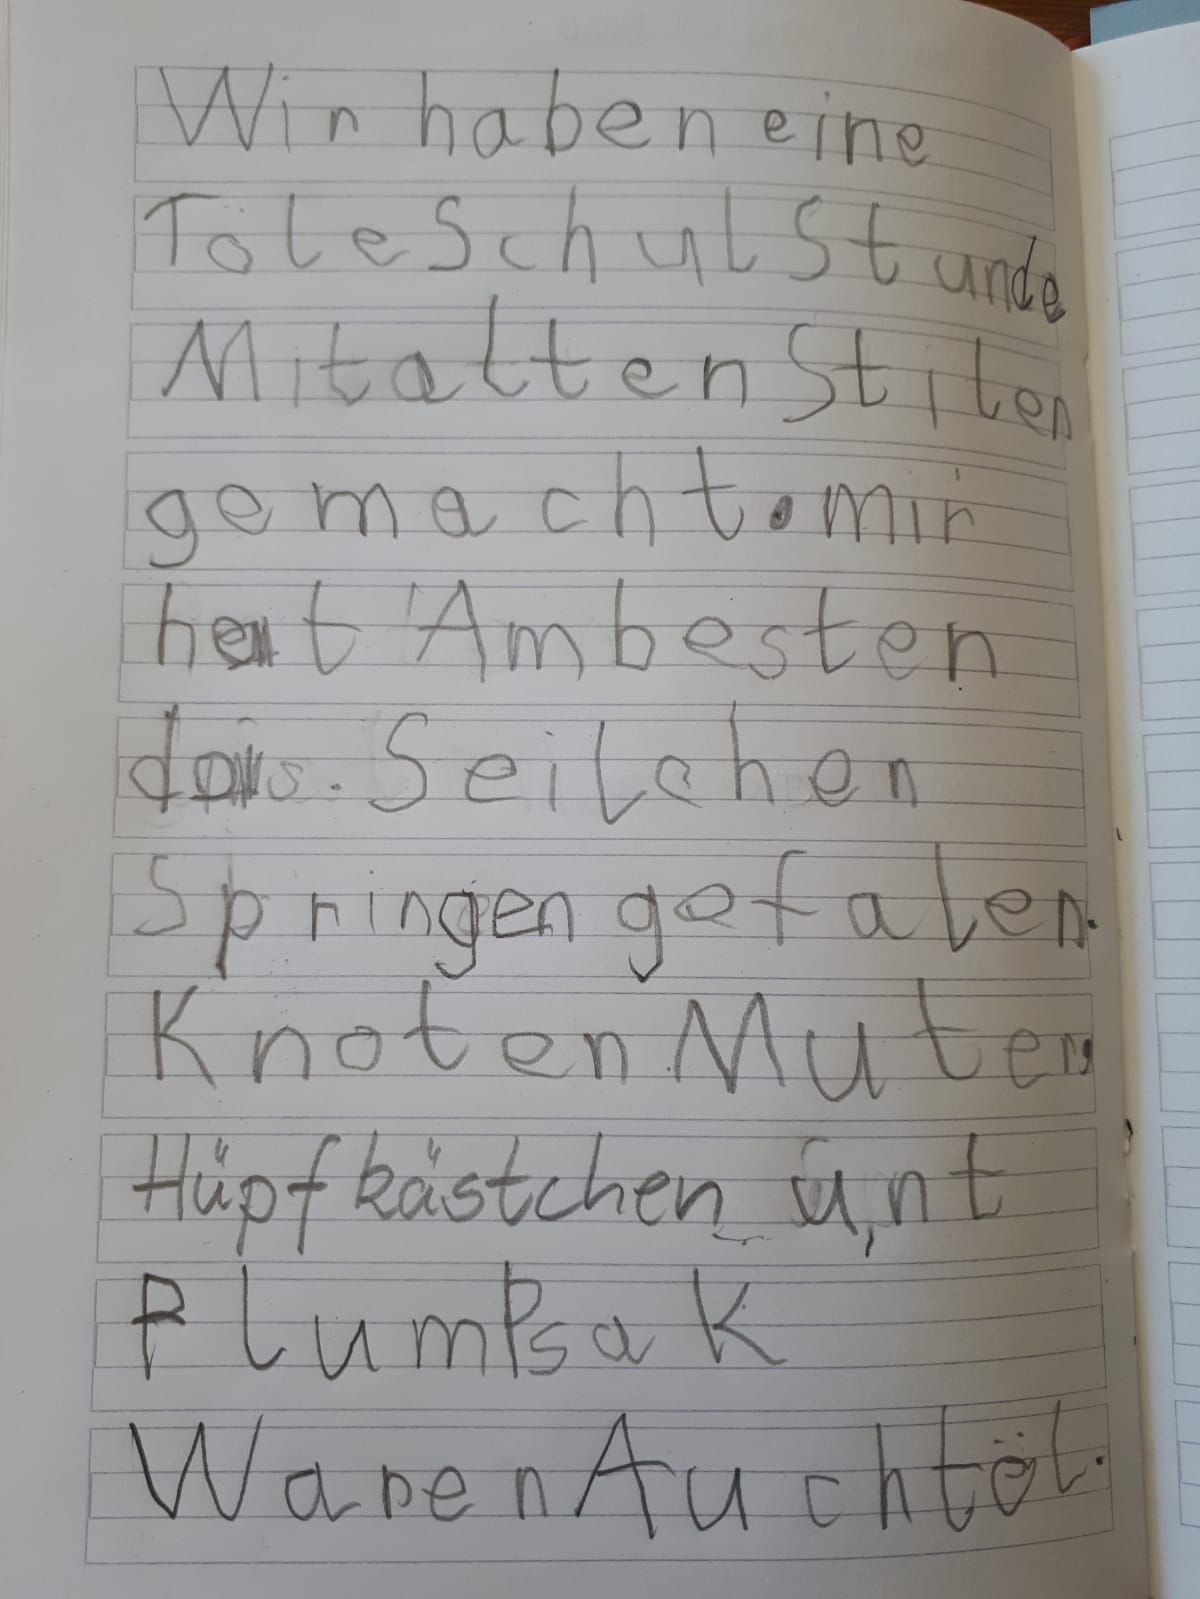 Wir haben eine
Töle Schul Stunde
Mit alten Stilen
gemacht. mir
hat Am besten
das. Seilchen
Springen gefalen.
Knoten Muter
Hüpfkästchen unt
PlumPsak
Waren Auch töl.